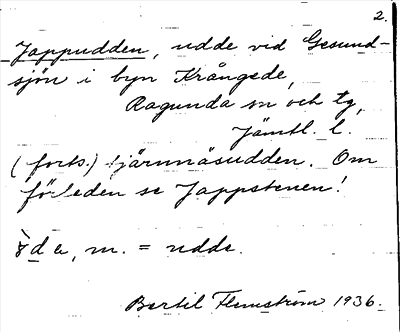 2.
Jappudden, udde vid Gesund-
sjön i byn Krångede,
Ragunda sn och tg,
Jämtl. l.
(forts.) tjärnnäsudden. Om
förleden se Jappstenen!
da, m. = udde.
Bertil Flemström 1936.